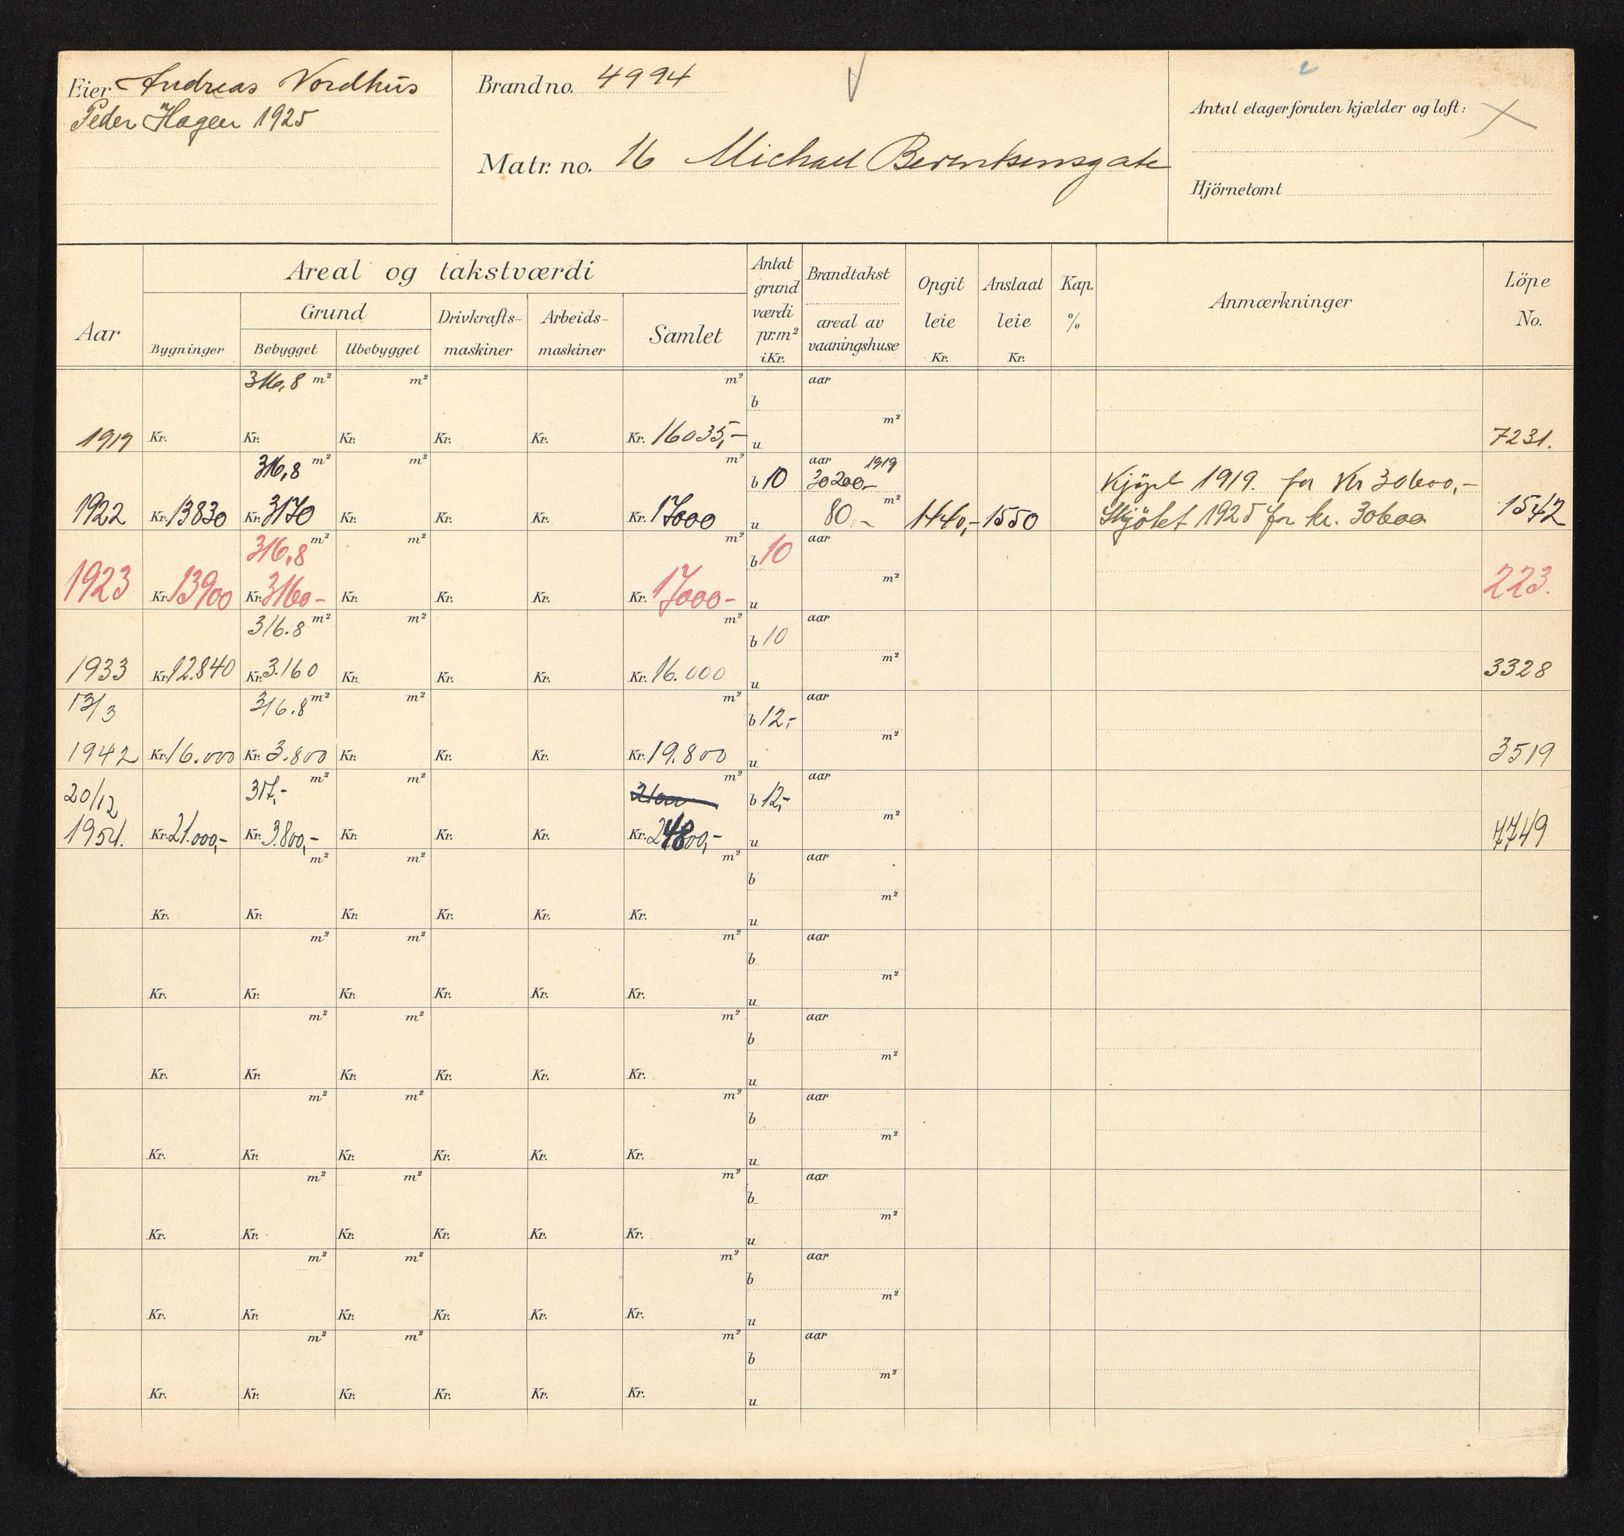 Eier Andreas Nordhus
Peder Hagen 1925
Brandno. 4994
Matr. no. 16 Michael Berentsensgate
Antal etager foruten kjælder og loft:
Hjörnetomt
Aar
Areal og takstværdi
Bygninger
Grund
Bebygget
Ubebygget
Drivkrafts-
maskiner
Arbeids-
maskiner
Samlet
Antat
grund
værdi
pr. m²
i Kr.
Brandtakst
areal av
vaaningshuse
Opgit
leie
Kr.
Anslaat
leie
Kr.
Kap.
%
Anmærkninger
Löpe
No.
316,8 m² m² m² b aar
m²
1919 Kr. Kr. Kr. Kr. Kr. Kr. 16035,- u 7231.
316,8 m² m² m² b 10 aar 1919
30200,- Kjöpt 1919. for Kr 30600,-
1922 Kr. 13830 Kr. 3170 Kr. Kr. Kr. Kr. 17000 u 80,- m² 1440,- 1550 Skjötet 1925 for kr. 30600 1542
316,8 m² m² m² b 10 aar
m²
1923 Kr. 13900 Kr. 3160- Kr. Kr. Kr. Kr. 17000- u 223.
316.8 m² m² m² b 10 aar
m²
1933 Kr. 12.840 Kr. 3.160 Kr. Kr. Kr. Kr. 16.000 u 3328
13/3 316.8 m² m² m² b 12,- aar
m²
1942 Kr. 16.000 Kr. 3.800 Kr. Kr. Kr. Kr. 19.800 u 3519
20/12 317,- m² m² m² b 12,- aar
m²
1954. Kr. 21.000,- Kr. 3.800,- Kr. Kr. Kr. Kr. 24800,- u 7749
m² m² m² b aar
m²
Kr. Kr. Kr. Kr. Kr. Kr. u
m² m² m² b aar
m²
Kr. Kr. Kr. Kr. Kr. Kr. u
m² m² m² b aar
m²
Kr. Kr. Kr. Kr. Kr. Kr. u
m² m² m² b aar
m²
Kr. Kr. Kr. Kr. Kr. Kr. u
m² m² m² b aar
m²
Kr. Kr. Kr. Kr. Kr. Kr. u
m² m² m² b aar
m²
Kr. Kr. Kr. Kr. Kr. Kr. u
m² m² m² b aar
m²
Kr. Kr. Kr. Kr. Kr. Kr. u